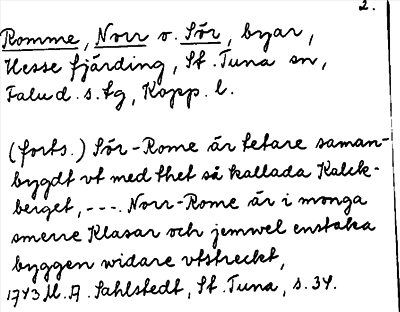 2.
Romme, Norr o. Sör, byar,
Hesse fjärding, St. Tuna sn,
Falu d. s. tg, Kopp. l.
(forts.) Sör-Rome är tetare saman-
bygdt vt med thet så kallada Kalck-
berget, ---. Norr-Rome är i monga
smerre Klasar och jemwel enstaka
byggen widare vtstreckt,
1743 M. A. Sahlstedt, St. Tuna, s. 34.